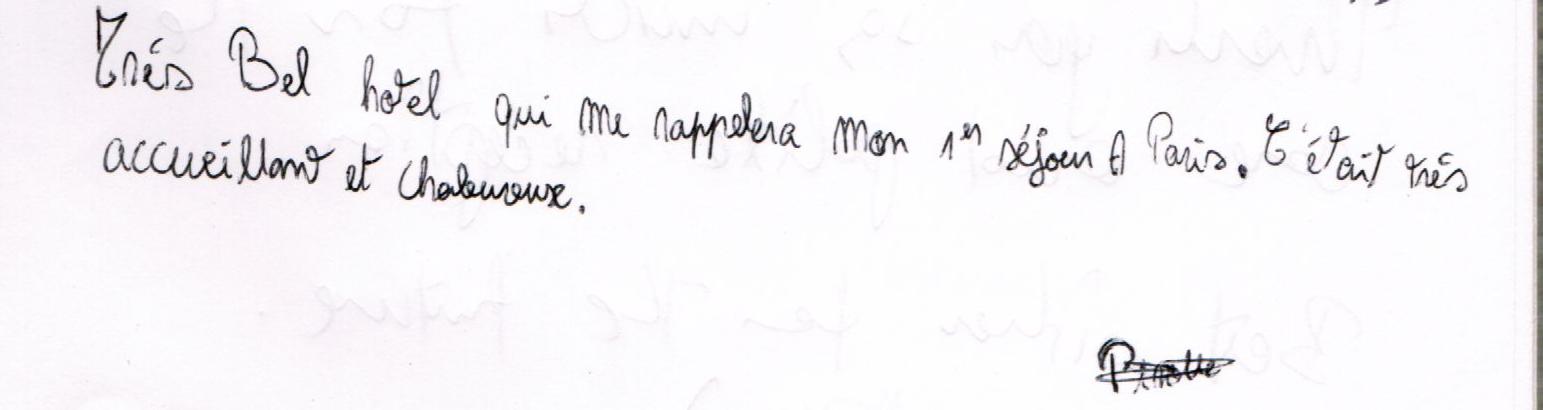 Trés Bel hotel qui me rappelera mon 1er séjour à Paris. C'était trés
accueillant et chaleureux.